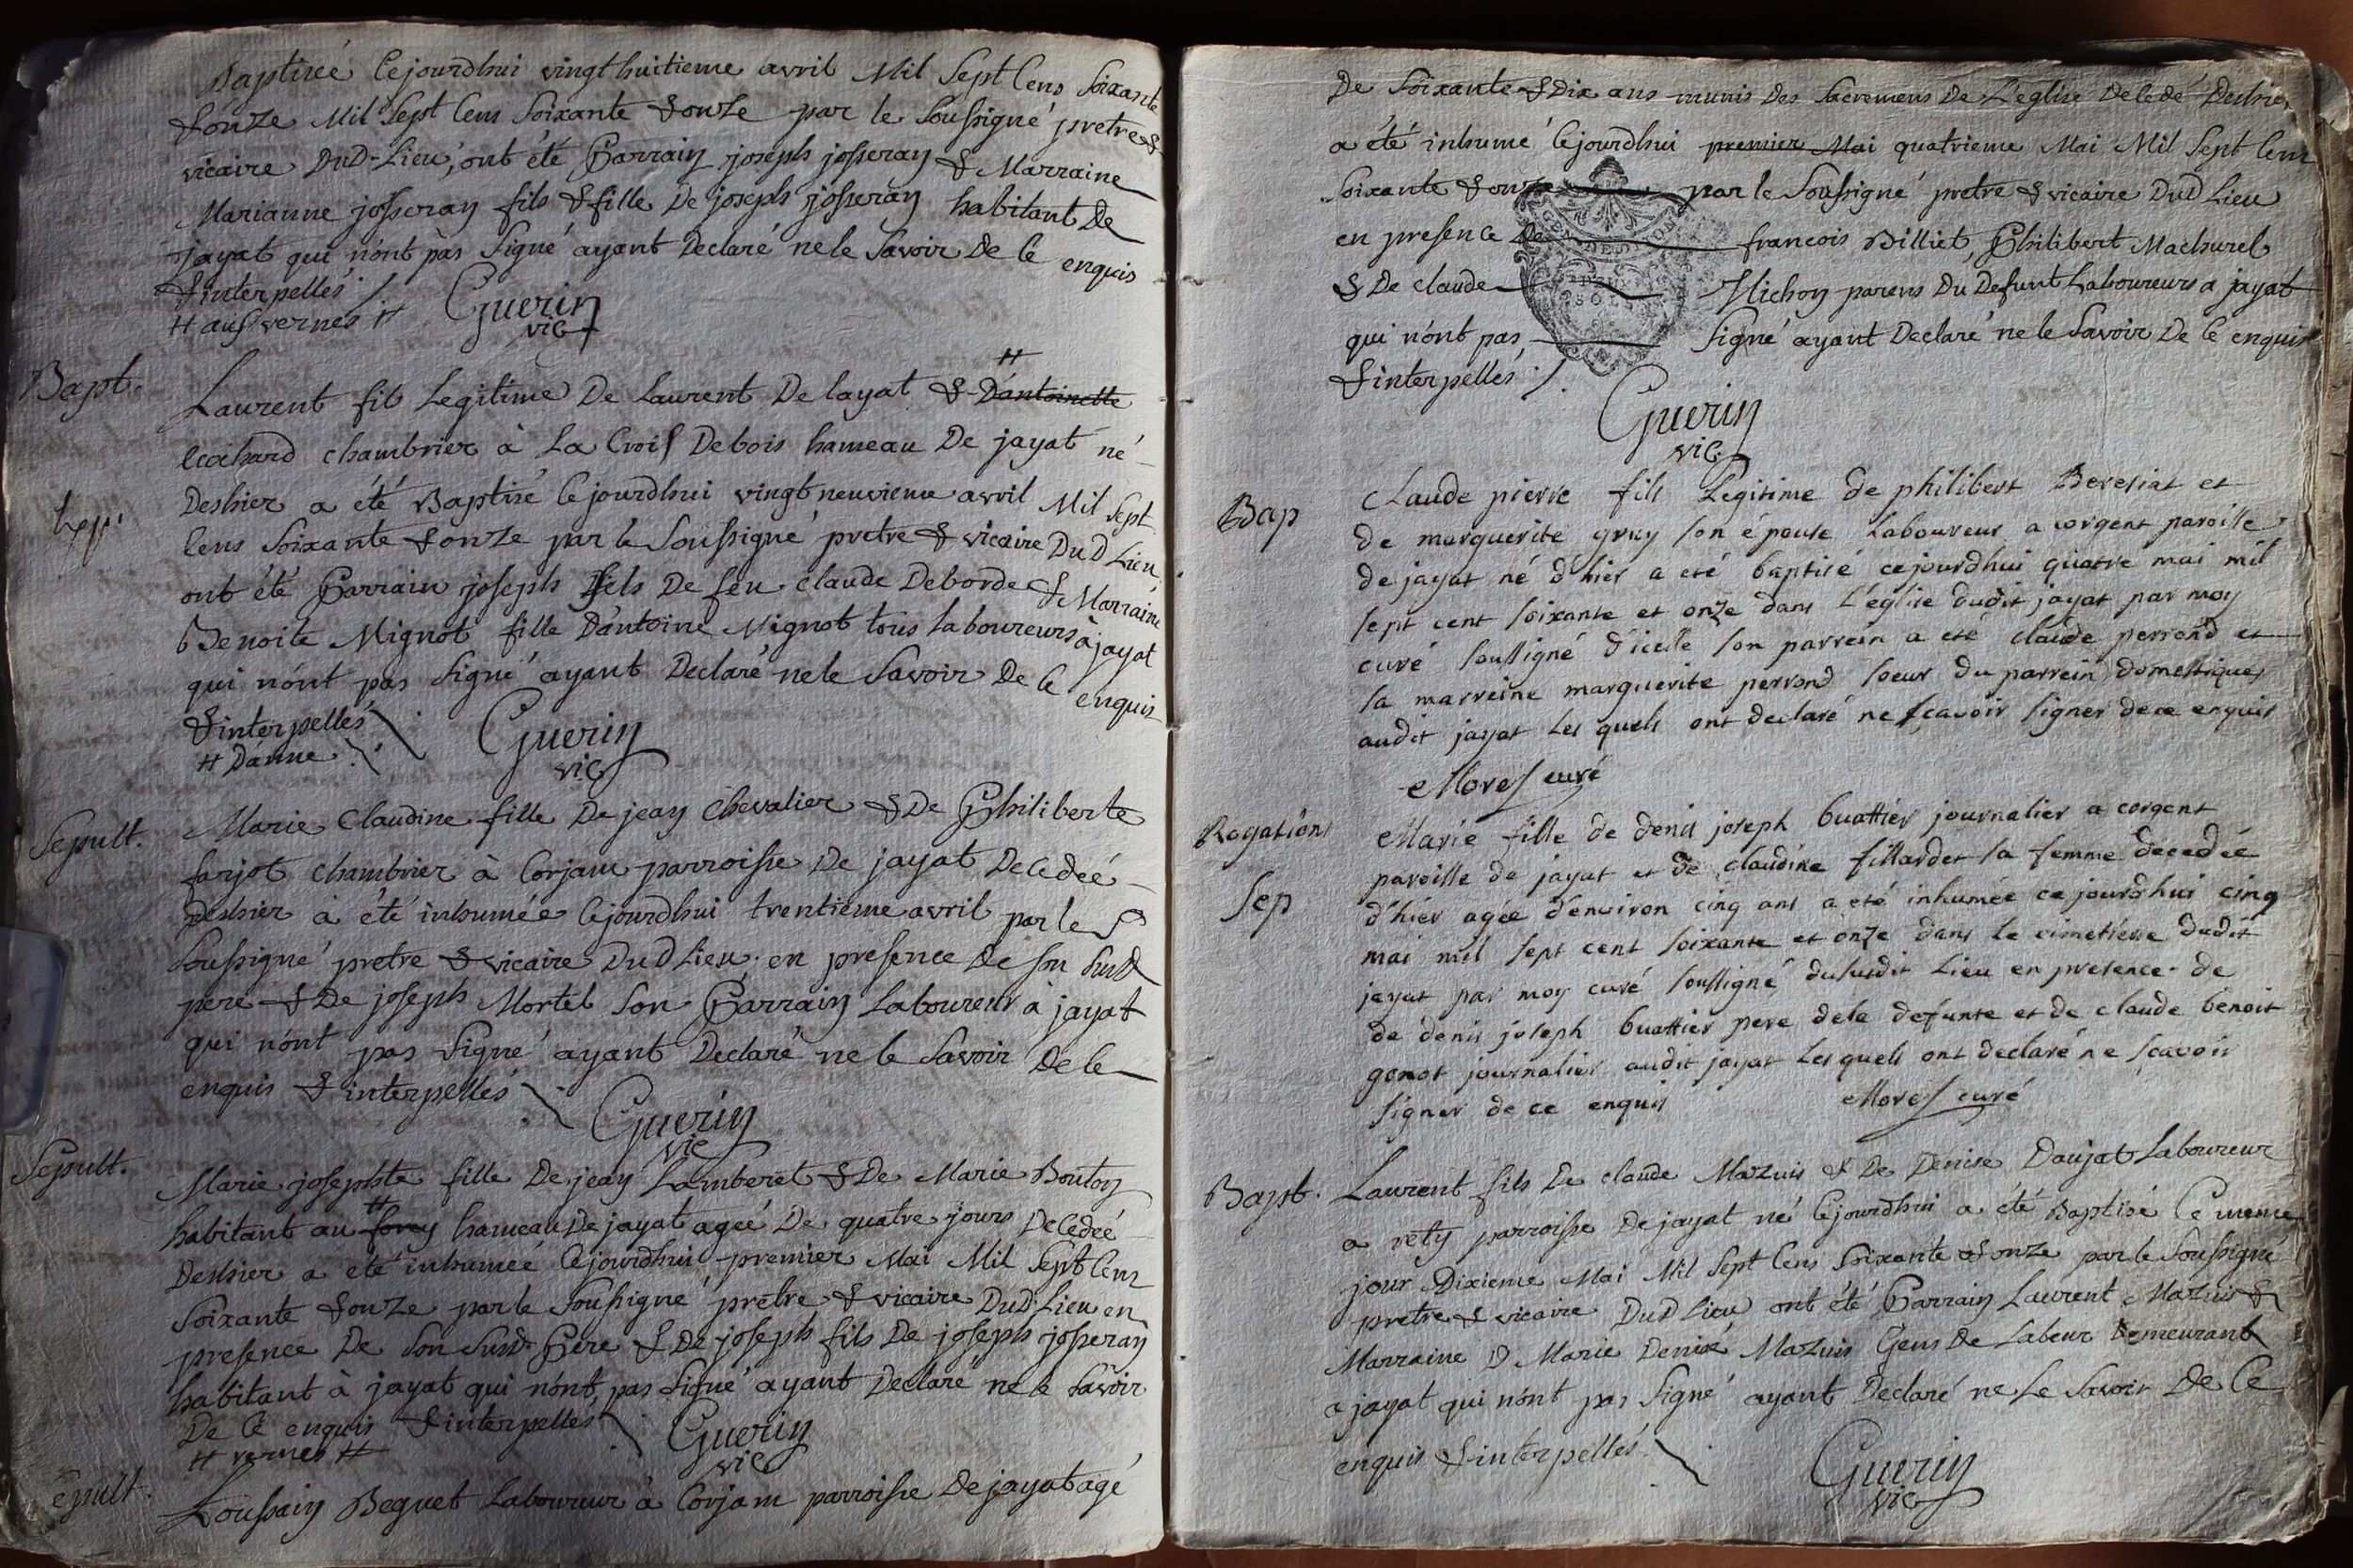 Baptizée Cejourdhui vingt huitieme avril Mil Sept Cens Soixante
& onze Mil Sept Cens Soixante & onze par le Soussigné pretre &
vicaire DuD. Lieu, ont été Parrain joseph josseran & Marraine
Marianne josseran fils & fille De joseph josseran habitant De
jayat qui n'ont pas Signé ayant Declaré ne le Savoir De Ce enquis
& interpellés ·/.
# aus vernes #
Guerin
vic
Bapt.
Laurent fils Legitime De Laurent De layat & D'antoinette #
Cochard chambrier à La Croix De bois hameau De jayat né
Deshier a été Baptisé Cejourdhui vingt neuvieme avril Mil Sept
Cens Soixante & onze par le Soussigné pretre & vicaire DuD Lieu
ont été Parrain joseph fils De feu claude Deborde & Marraine
Benoite Mignot fille D'antoine Mignot tous Laboureurs à jayat
qui n'ont pas Signé ayant Declaré ne le Savoir De Ce enquis
& interpellés
# D'anne
Guerin
vic
Sepult.
Marie Claudine fille De jean Chevalier & De Philiberte
farjot chambrier à Corjam parroisse De jayat Decedeé
Deshier à été inhumée Cejourdhui trentieme avril par le S
Soussigné pretre & vicaire DuD Lieu en presence De son Susd
pere & De joseph Mortel son Parrain Laboureur à jayat
qui n'ont pas Signé ayant Declaré ne le Savoir De Ce
enquis & interpellés
Guerin
vic
Sepult.
Marie josephte fille De jean Lamberet & De Marie Bouton
habitant au # hameau De jayat ageé De quatre jours Decedeé
Deshier a été inhumeé Cejourdhui premier Mai Mil Sept Cens
Soixante & onze par le Soussigné pretre & vicaire DuD. Lieu en
presence De Son Susd. Pere & De joseph fils De joseph josseran
habitant à jayat qui n'ont pas Signé ayant Declaré ne le Savoir
De Ce enquis & interpellés
# vernes #
Guerin
vic
Sepult.
Toussain Beguet Laboureur à Corjam parroisse De jayat agé
De Soixante & Dix ans munis Des Sacremens De L'eglise Decedé Deshier
a été inhumé Cejourdhui premier Mai quatrieme Mai Mil Sept Cens
Soixante & onze par le Soussigné pretre & vicaire DuD Lieu
en presence De francois Billiet, Philibert Machurel
& De claude Michon parens Du Defunt Laboureurs a jayat
qui n'ont pas Signé ayant Declaré ne le Savoir De Ce enquis
& interpellés ·/.
GEN. DE DIJON
Guerin
vic
Bap
Claude pierre fils Legitime de philibert Bereziat et
de marguerite gruy son épouse Laboureur a corgent paroisse
de jayat né d'hier a eté baptisé cejourdhui quatre mai mil
sept cent soixante et onze dans L'église dudit jayat par moy
curé soussigné d'icelle son parrein a eté claude perrond et
sa marreine marguerite perrond soeur du parrein domestiques
audit jayat Les quels ont declaré ne sçavoir signer dece enquis
Morel curé
Rogations
Sep
Marie fille de denis joseph buattier journalier a corgent
paroisse de jayat et de claudine fillardet sa femme decedée
d'hier agée d'environ cinq ans a eté inhumée ce jourd'hui cinq
mai mil sept cent soixante et onze dans le cimetiere dudit
jayat par moy curé soussigné dusudit Lieu en presence de
de denis joseph buattier pere dela defunte et de claude benoit
gonot journalier audit jayat Les quels ont declaré ne sçavoir
signer de ce enquis
Morel curé
Bapt.
Laurent fils De claude Mazuis & De Denise Daujat Laboureur
a rety parroisse De jayat né Cejourdhui a été Baptisé Ce meme
jour Dixieme Mai Mil Sept Cens Soixante & onze par le Soussigné
pretre & vicaire DuD Lieu ont été Parrain Laurent Mazuis &
Marraine D Marie Denise Mazuis Gens De Labeur Demeurant
a jayat qui n'ont pas Signé ayant Declaré ne Le Savoir De Ce
enquis & interpellés
Guerin
vic